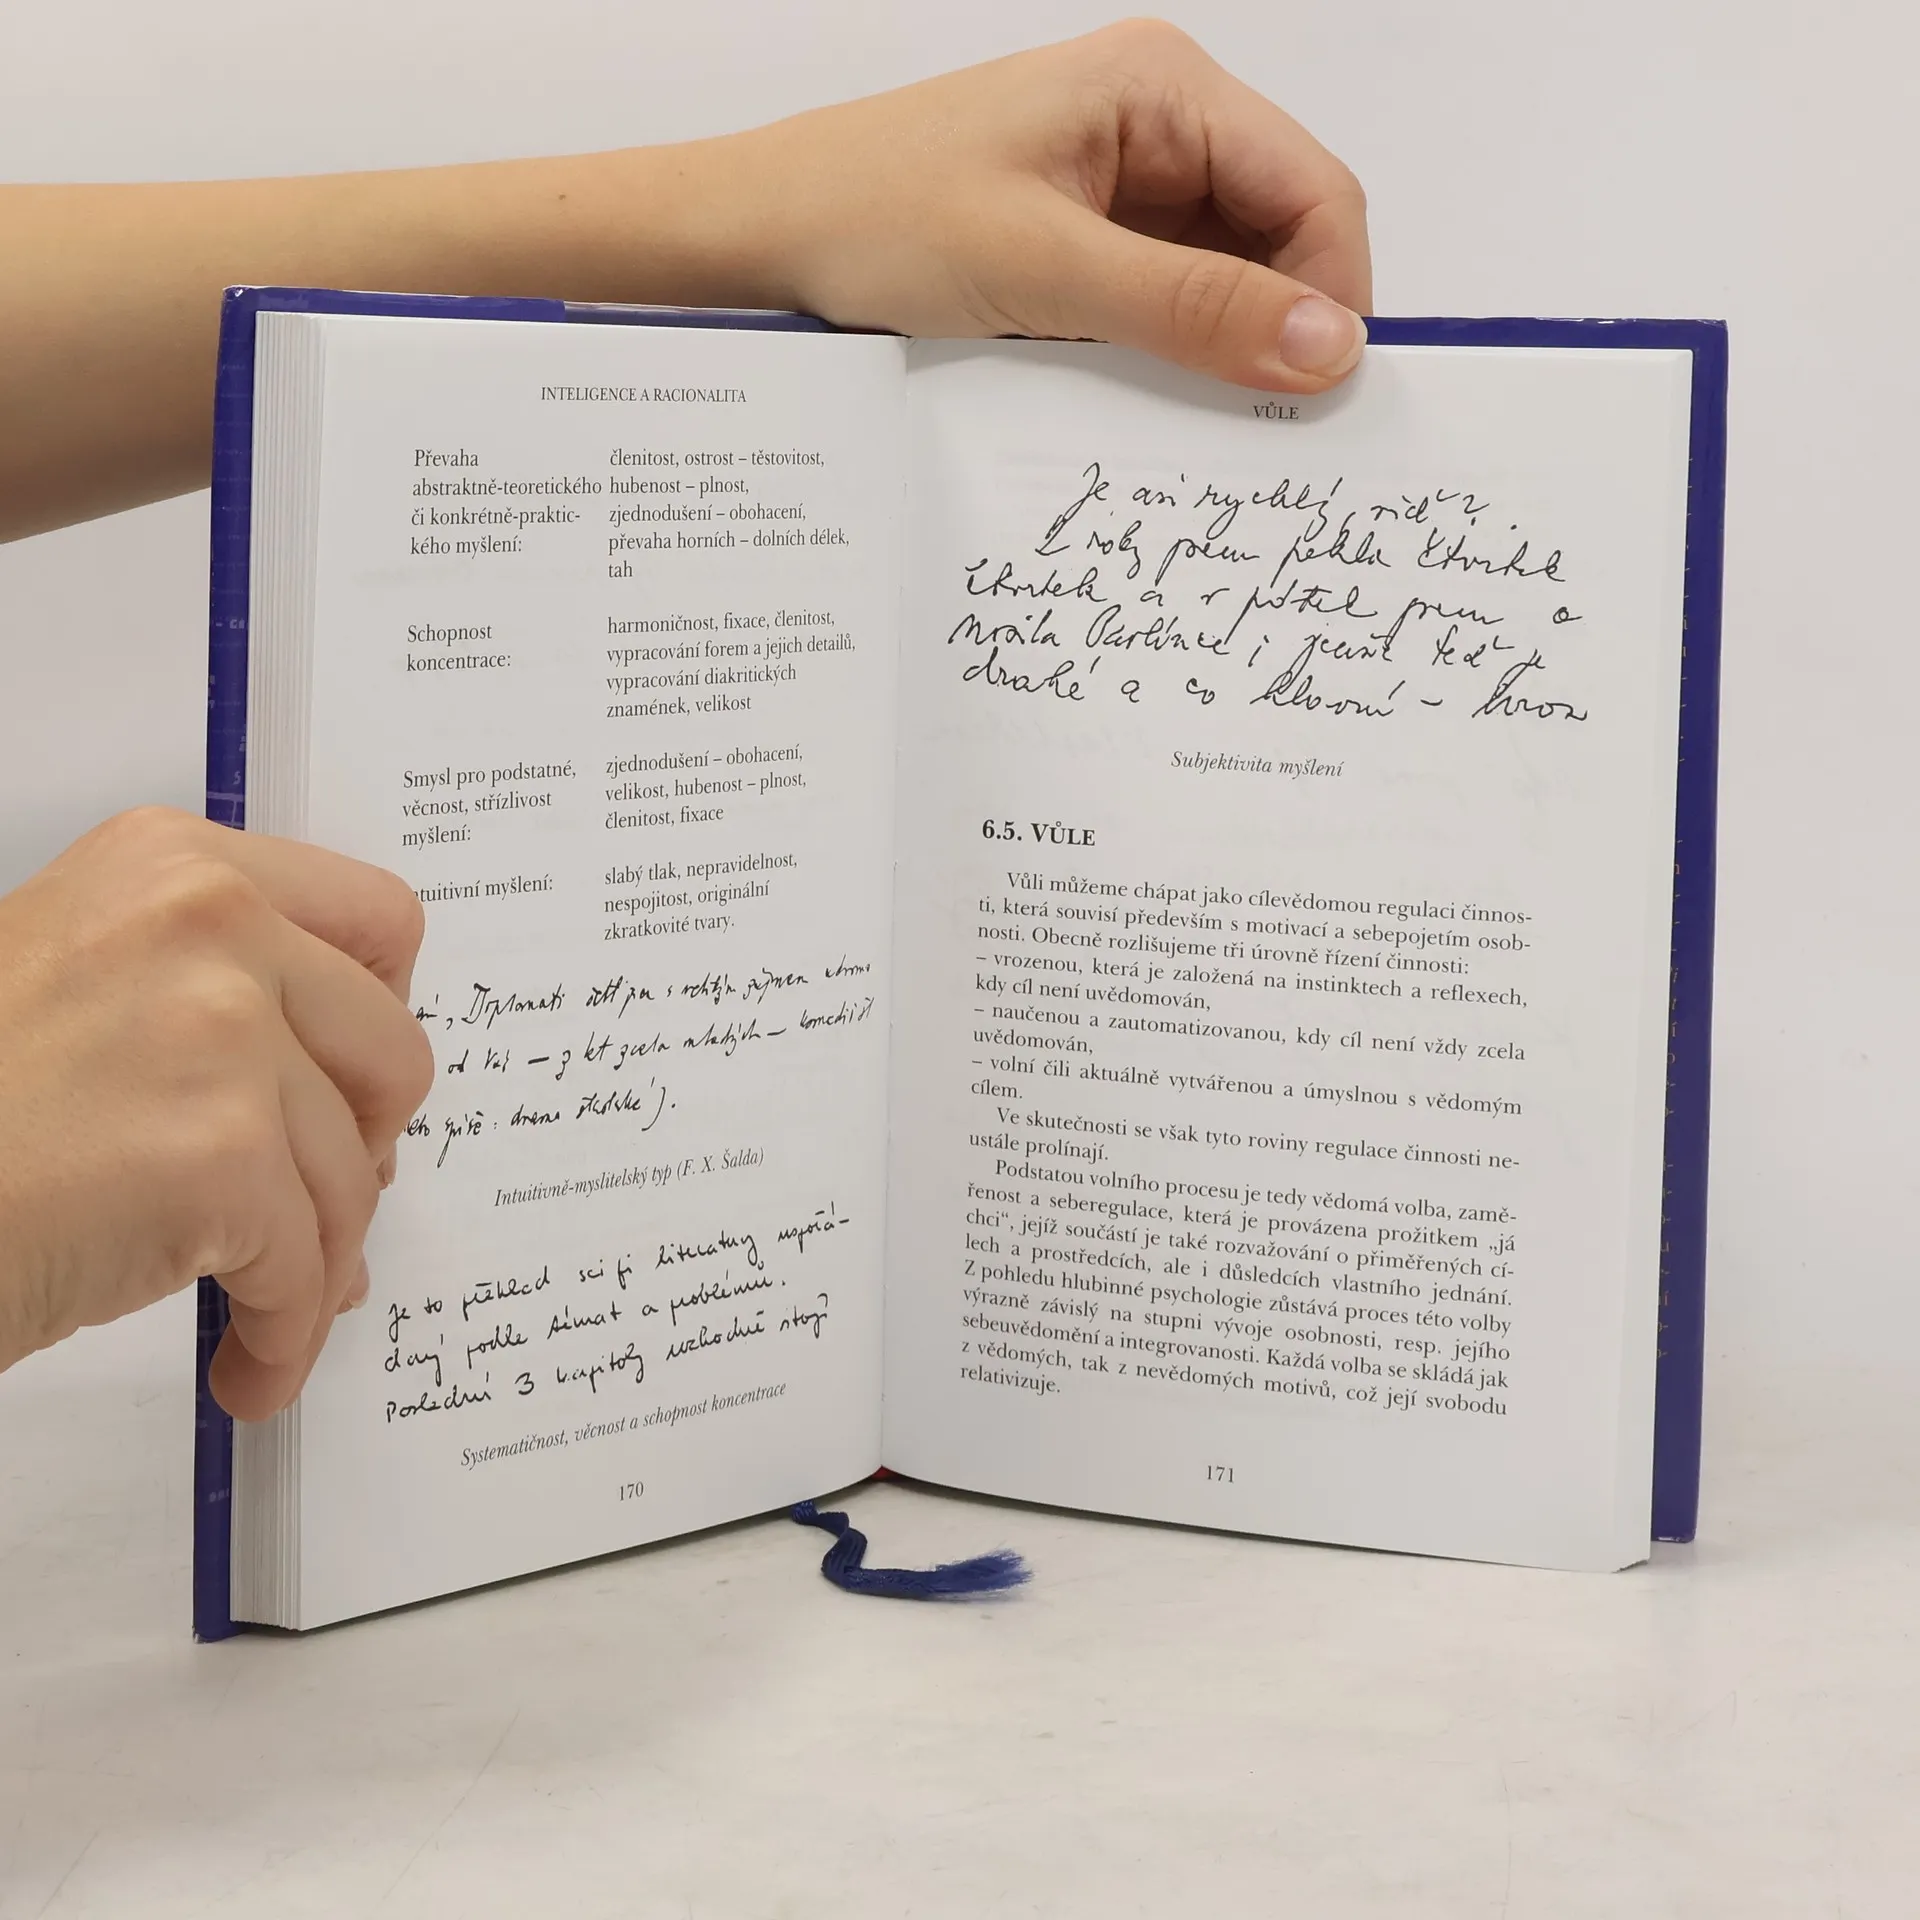 INTELIGENCE A RACIONALITA
Převaha
abstraktně-teoretického
či konkrétně-praktic-
kého myšlení:
členitost, ostrost – těstovitost,
hubenost – plnost,
zjednodušení – obohacení,
převaha horních – dolních délek,
tah
Schopnost
koncentrace:
harmoničnost, fixace, členitost,
vypracování forem a jejich detailů,
vypracování diakritických
znamének, velikost
Smysl pro podstatné,
věcnost, střízlivost
myšlení:
zjednodušení – obohacení,
velikost, hubenost – plnost,
členitost, fixace
tuitivní myšlení:
slabý tlak, nepravidelnost,
nespojitost, originální
zkratkovité tvary.
„Diplomati četl jsem s velkým zájmem
od Vás – z let zcela mladých –
spíše: drama
Intuitivně-myslitelský typ (F. X. Šalda)
Je to přehled sci fi literatury uspořá-
daný podle témat a problémů.
Poslední 3 kapitoly rozhodně stojí
Systematičnost, věcnost a schopnost koncentrace
170
VŮLE
Je asi rychlý, viď?
jsem pekla čtvrtek
čtvrtek a v pátek jsem o
nosila teď je
drahé a co hlavní – hroz
Subjektivita myšlení
6.5. VŮLE
Vůli můžeme chápat jako cílevědomou regulaci činnos-
ti, která souvisí především s motivací a sebepojetím osob-
nosti. Obecně rozlišujeme tři úrovně řízení činnosti:
– vrozenou, která je založená na instinktech a reflexech,
kdy cíl není uvědomován,
– naučenou a zautomatizovanou, kdy cíl není vždy zcela
uvědomován,
– volní čili aktuálně vytvářenou a úmyslnou s vědomým
cílem.
Ve skutečnosti se však tyto roviny regulace činnosti ne-
ustále prolínají.
Podstatou volního procesu je tedy vědomá volba, zamě-
řenost a seberegulace, která je provázena prožitkem „já
chci“, jejíž součástí je také rozvažování o přiměřených cí-
lech a prostředcích, ale i důsledcích vlastního jednání.
Z pohledu hlubinné psychologie zůstává proces této volby
výrazně závislý na stupni vývoje osobnosti, resp. jejího
sebeuvědomění a integrovanosti. Každá volba se skládá jak
z vědomých, tak z nevědomých motivů, což její svobodu
relativizuje.
171